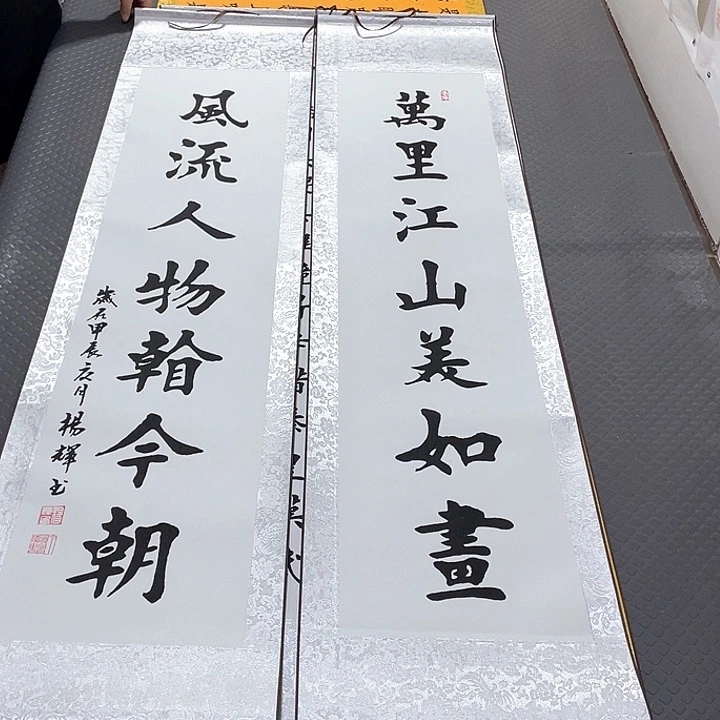 萬里江山美如畫
風流人物今朝
歲在甲辰月楊輝书